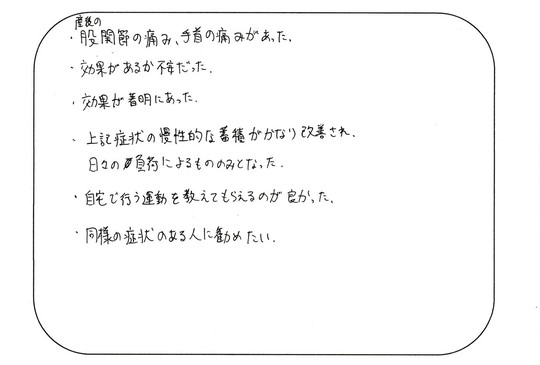 産後の
・股関節の痛み、手首の痛みがあった.
・効果があるか不安だった.
・効果が著明にあった.
・上記症状の慢性的な蓄積がかなり改善され.
日々の負荷によるもののみとなった.
・自宅で行う運動を教えてもらえるのが良かった.
・同様の症状のある人に勧めたい.